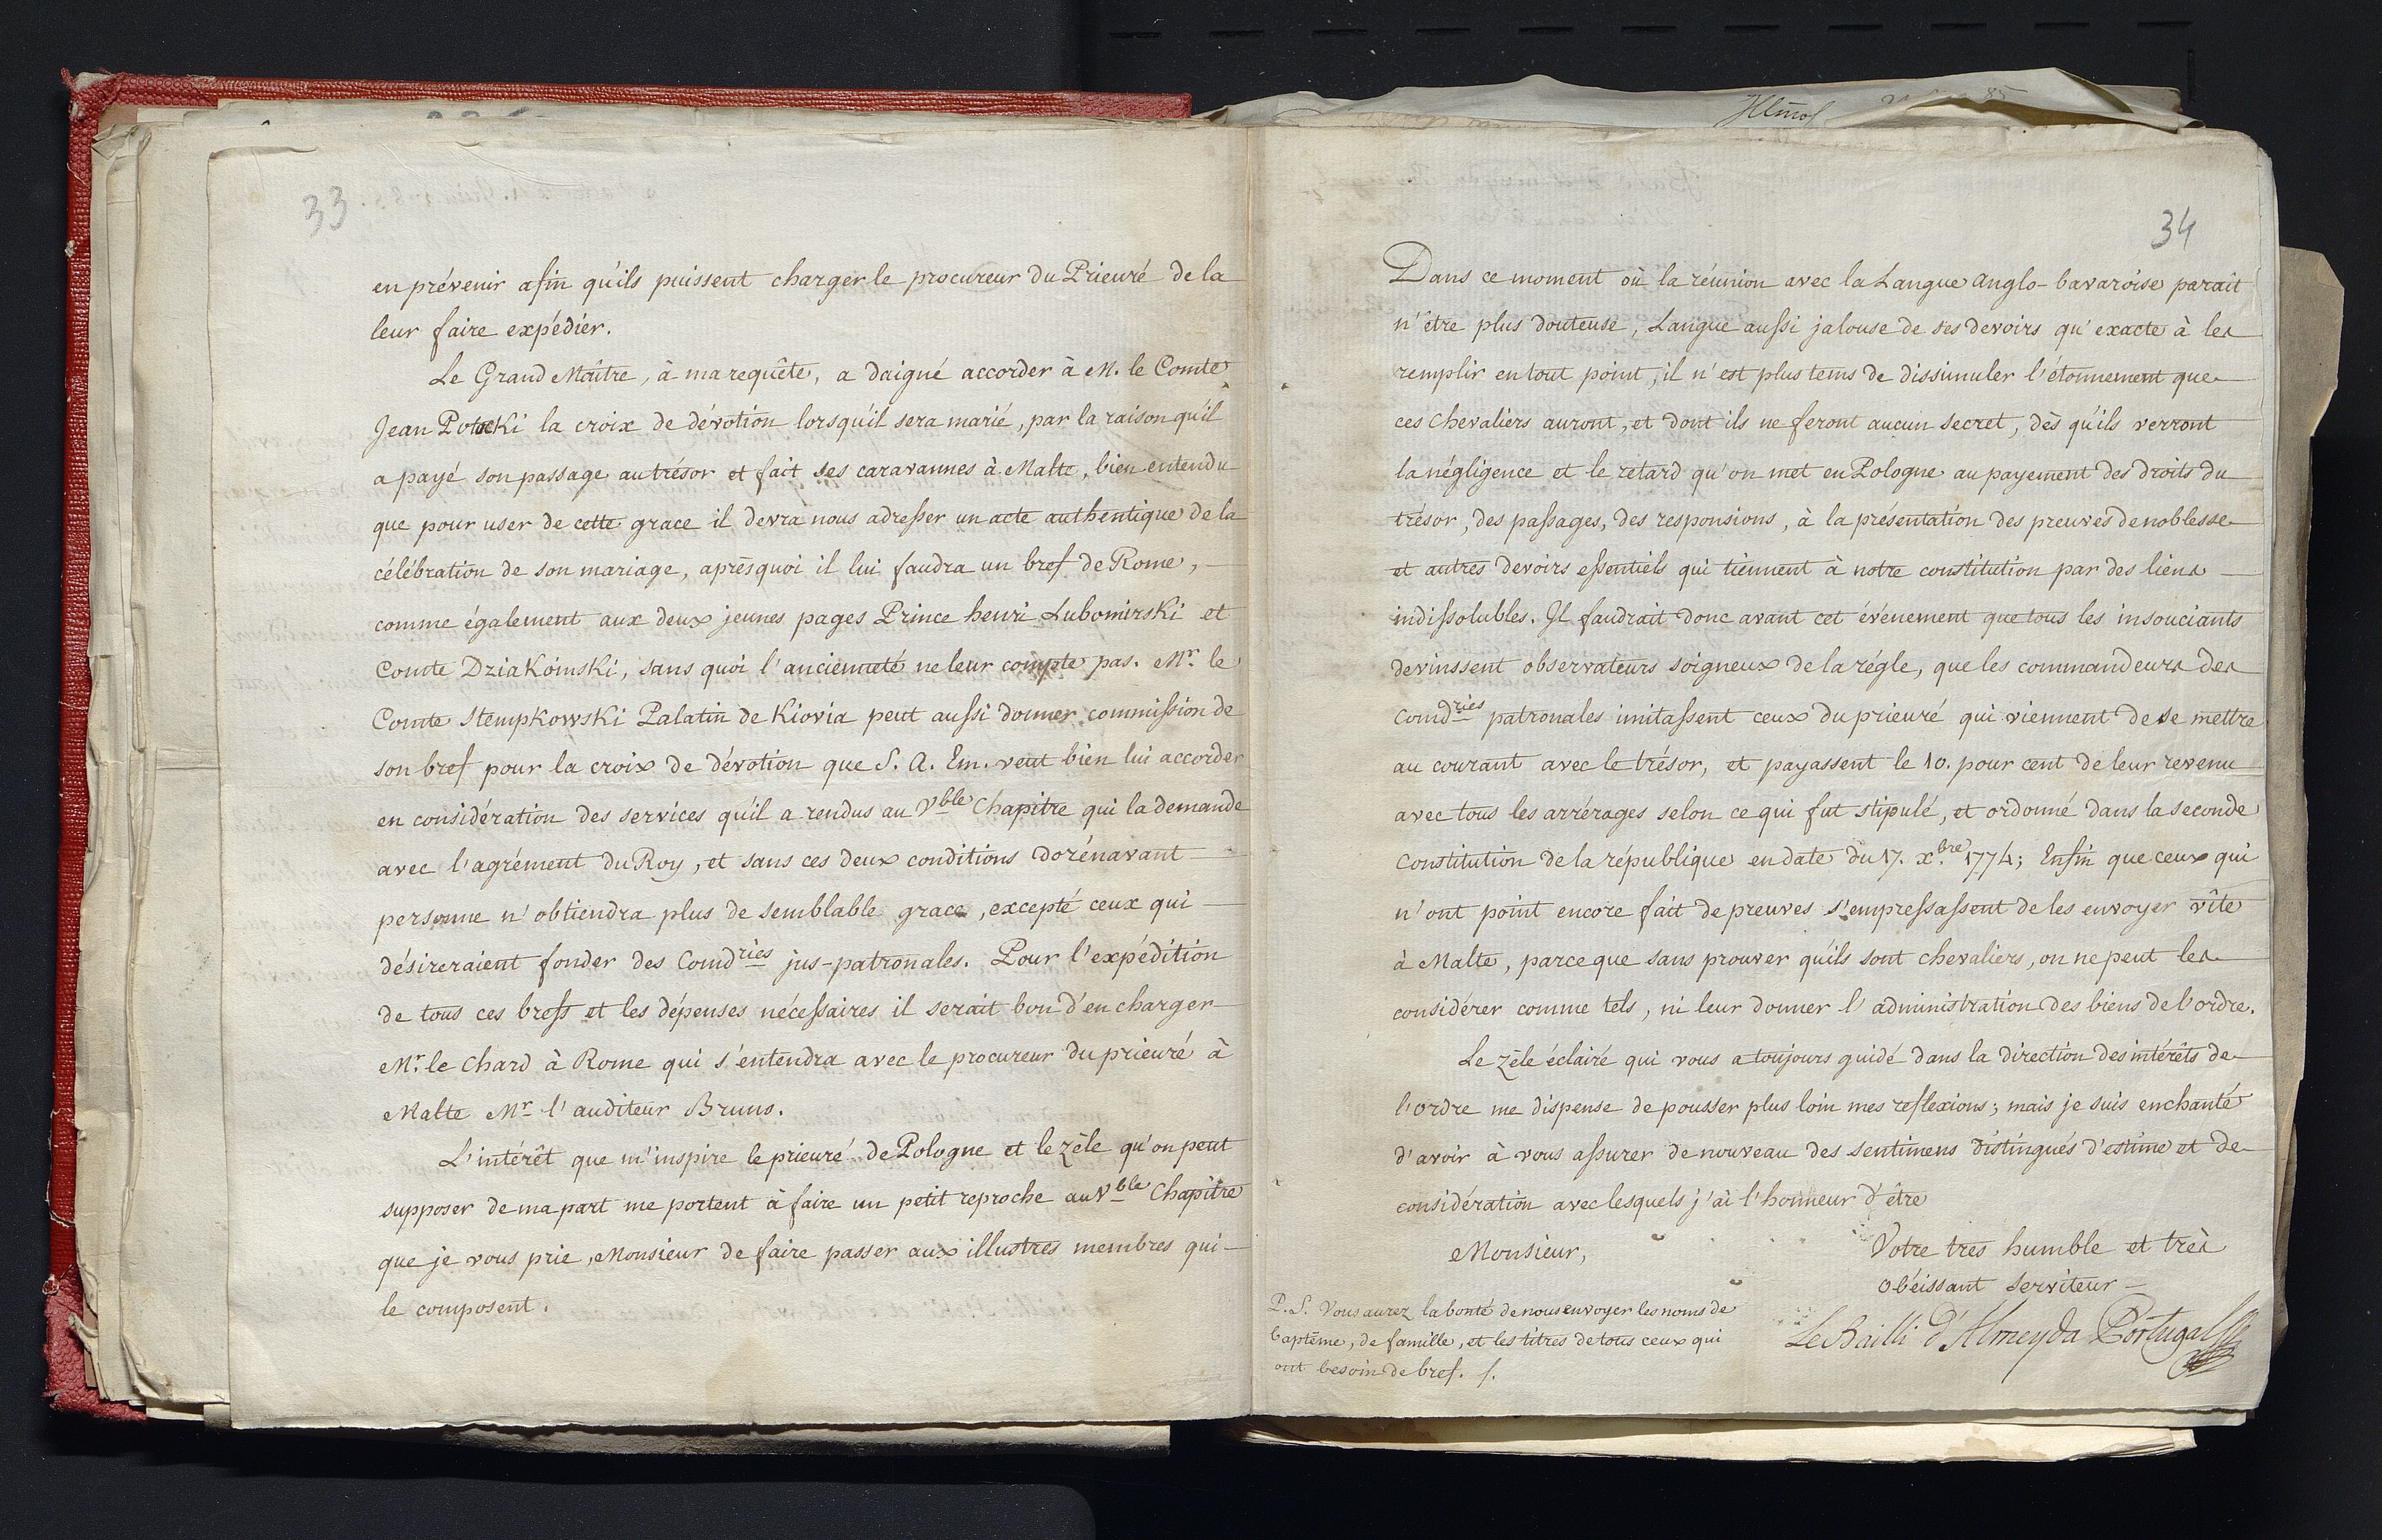 33
en prévenir afin qu'ils puissent charger le procureur du Prieuré de la
leur faire expédier.
Le Grand Maître, à ma requête, a daigné accorder à M. le Comte
Jean Potocki la croix de dévotion lorsqu'il sera marié, par la raison qu'il
a payé son passage au trésor et fait ses caravannes à Malte, bien entendu
que pour user de cette grace il devra nous adresser un acte authentique de la
célébration de son mariage, après quoi il lui faudra un bref de Rome,
comme également aux deux jeunes pages Prince henri Lubomirski et
Comte Dziakoinski, sans quoi l'ancienneté ne leur compte pas. Mr. le
Comte Stempkowski Palatin de Kiovia peut aussi donner commission de
son bref pour la croix de dévotion que S. A. Em. veut bien lui accorder
en considération des services qu'il a rendus au Vble Chapitre qui la demande
avec l'agrément du Roy, et sans ces deux conditions dorénavant
personne n'obtiendra plus de semblable grace, excepté ceux qui
désireraient fonder des Comdries jus-patronales. Pour l'expédition
de tous ces brefs et les dépenses nécessaires il serait bon d'en charger
Mr. le Chard à Rome qui s'entendra avec le procureur du prieuré à
Malte Mr l'auditeur Bruno.
L'intérêt que m'inspire le prieuré de Pologne et le zèle qu'on peut
supposer de ma part me portent à faire un petit reproche au Vble Chapitre
que je vous prie, Monsieur de faire passer aux illustres membres qui
le composent.
34
Dans ce moment où la réunion avec la Langue Anglo-bavaroise parait
n'être plus douteuse, Langue aussi jalouse de ses devoirs qu'exacte à les
remplir en tout point, il n'est plus tems de dissimuler l'étonnement que
ces Chevaliers auront, et dont ils ne feront aucun secret, dès qu'ils verront
la négligence et le retard qu'on met en Pologne au payement des droits du
trésor, des passages, des responsions, à la présentation des preuves de noblesse
et autres devoirs essentiels qui tiennent à notre constitution par des liens
indissolubles. Il faudrait donc avant cet événement que tous les insouciants
devinssent observateurs soigneux de la régle, que les commandeurs des
Comdries patronales imitassent ceux du prieuré qui viennent de se mettre
au courant avec le trésor, et payassent le 10. pour cent de leur revenu
avec tous les arrérages selon ce qui fut stipulé, et ordonné dans la seconde
Constitution de la république en date du 17. xbre 1774; Enfin que ceux qui
n'ont point encore fait de preuves s'empressassent de les envoyer vîte
à Malte, parce que sans prouver qu'ils sont chevaliers, on ne peut les
considérer comme tels, ni leur donner l'administration des biens de l'ordre.
Le zèle éclairé qui vous a toujours guidé dans la direction des intérêts de
l'ordre me dispense de pousser plus loin mes reflexions; mais je suis enchanté
d'avoir à vous assurer de nouveau des sentimens distingués d'estime et de
considération avec lesquels j'ai l'honneur d'être
Monsieur,
Votre très humble et très
obéissant serviteur
Le Bailli d'Almeyda Portugal
P.S. Vous aurez la bonté de nous envoyer les noms de
baptême, de famille, et les titres de tous ceux qui
ont besoin de bref.